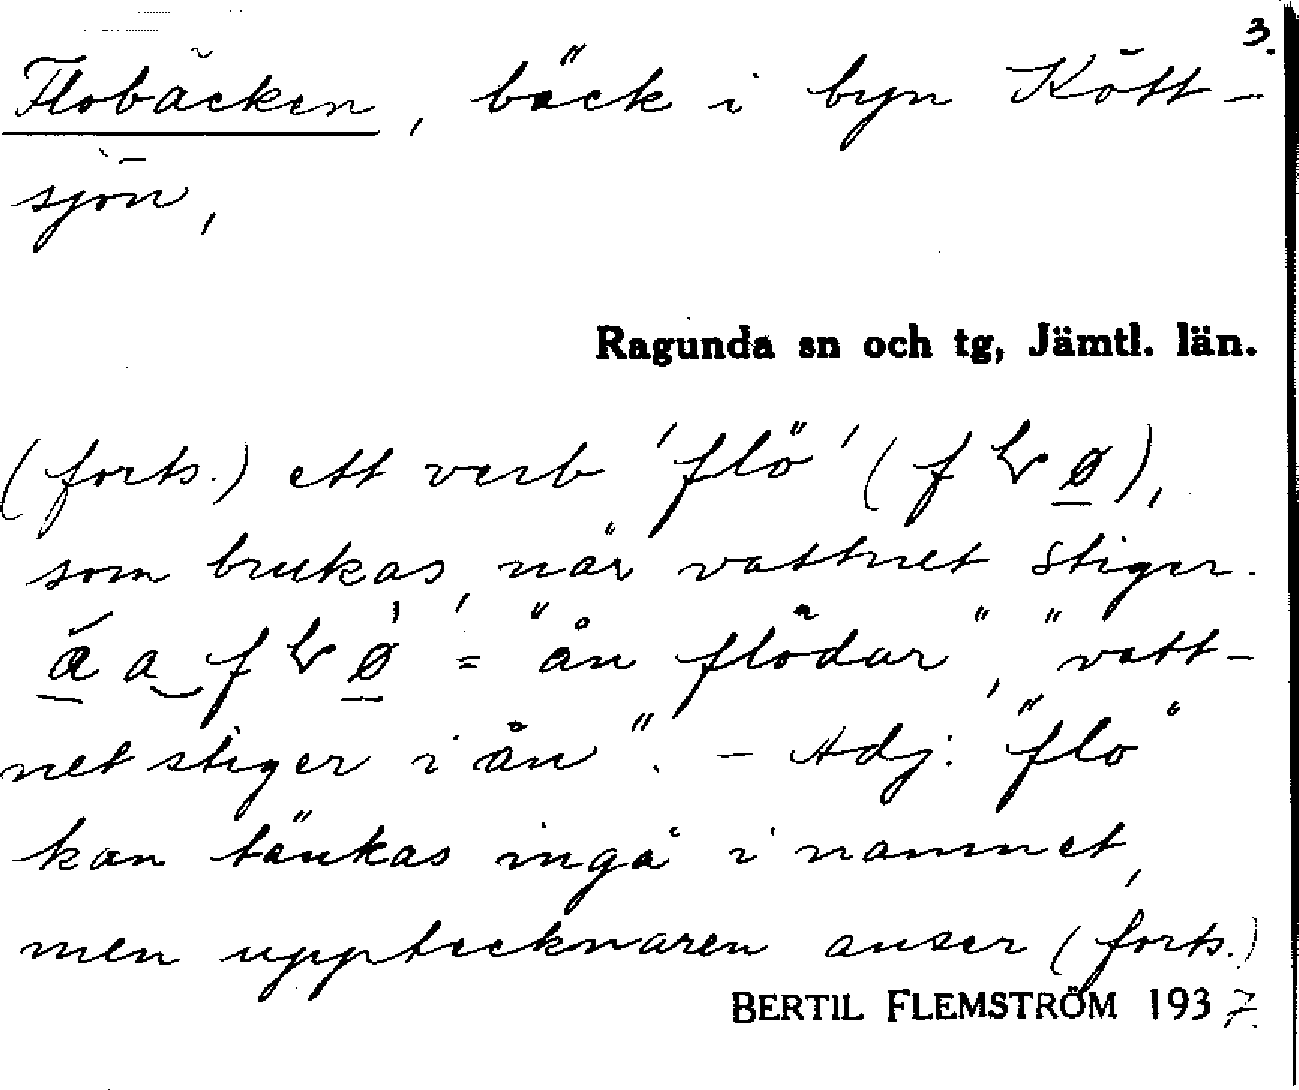 3.
Flobäcken, bäck i byn Kött-
sjön,
Ragunda sn och tg, Jämtl. län.
(forts.) ett verb 'flö' (f ø),
som brukas, när vattnet stiger.
= "ån flödar", "vatt-
net stiger i ån". - Adj. "flo"
kan tänkas ingå i namnet,
men upptecknaren anser (forts.)
BERTIL FLEMSTRÖM 1937.